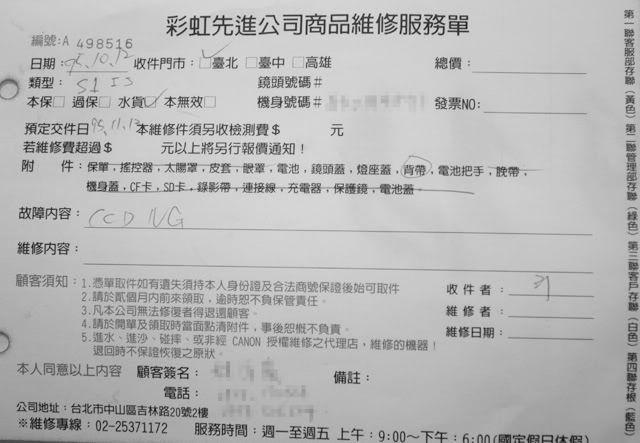 彩虹先進公司商品維修服務單
編號:A 498516
日期: 95.10.12 收件門市: □臺北 □臺中 □高雄 總價:
類型: S1 IS 鏡頭號碼#
本保□ 過保□ 水貨□ 本無效□ 機身號碼# 發票NO:
預定交件日 95.11.12 本維修件須另收檢測費$ 元
若維修費超過$ 元以上將另行報價通知!
附 件:保單,搖控器,太陽罩,皮套,眼罩,電池,鏡頭蓋,燈座蓋,背帶,電池把手,腕帶,
機身蓋,CF卡,SD卡,錄影帶,連接線,充電器,保護鏡,電池蓋。
故障內容: CCD NG
維修內容:
顧客須知:1.憑單取件如有遺失須持本人身份證及合法商號保證後始可取件
2.請於貳個月内前來領取,逾時恕不負保管責任。
3.凡本公司無法修復者得退還顧客。
4.請於開單及領取時當面點清附件,事後恕概不負責。
5.進水、進沙、碰摔、或非經 CANON 授權維修之代理店,維修的機器!
退回時不保證恢復之原狀。
收件者:
維修者:
維修日期:
本人同意以上內容 顧客簽名: 備註:
電話:
公司地址:台北市中山區吉林路20號2樓
※維修專線:02-25371172 服務時間:週一至週五 上午:9:00~下午:6:00(國定假日休假)
第一聯客服部存聯(黃色)第二聯管理部存聯(綠色)第三聯客戶存聯(白色)第四聯存根(藍色)